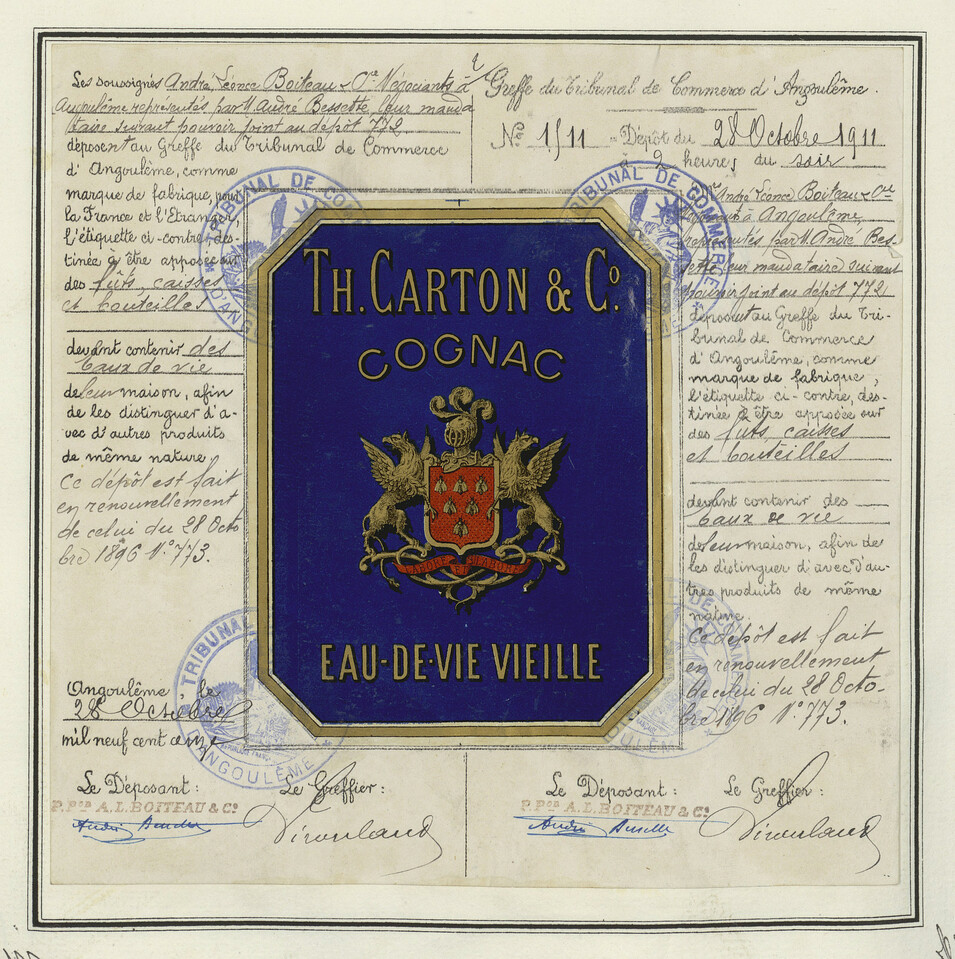 Les soussignés André Léonce Boiteau & Cie Négociants à
Angoulême représentés par M. André Bessette leur manda
taire suivant pouvoir joint au dépôt 772
déposent au Greffe du Tribunal de Commerce
d'Angoulême, comme
marque de fabrique, pour
la France et l'Etranger,
l'étiquette ci-contre, des-
tinée à être apposée sur
des fûts, caisses
et bouteilles
devant contenir des
Eaux de vie
de leur maison, afin
de les distinguer d'a-
vec d'autres produits
de même nature
Ce dépôt est fait
en renouvellement
de celui du 28 Octo
bre 1896 N° 773.
Angoulême, le
28 Octobre
mil neuf cent onze
Le Déposant:
P. Pon A. L. BOITEAU & Co
Le Greffier:
Greffe du Tribunal de Commerce d'Angoulême.
No 1511 Dépôt du 28 Octobre 1911
à 2 heures du soir
André Léonce Boiteau & Cie
à Angoulême
représentés par M. André Bes-
sette leur mandataire suivant
pouvoir joint au dépôt 772
déposent au Greffe du Tri-
bunal de Commerce
d'Angoulême, comme
marque de fabrique,
l'étiquette ci-contre, des-
tinée à être apposée sur
des fûts, caisses
et bouteilles
devant contenir des
Eaux de vie
de leur maison, afin de
les distinguer d'avec d'au-
tres produits de même
nature.
Ce dépôt est fait
en renouvellement
de celui du 28 Octo-
bre 1896 N° 773.
Le Déposant:
P. Pon A. L. BOITEAU & Co
Le Greffier:
TH. CARTON & Co
COGNAC
LABORE ET LABORE
EAU-DE-VIE VIEILLE
TRIBUNAL DE COM
D'ANG
TRIBUNAL DE COMMERCE
TRIBUNAL
D'ANGOULÊME